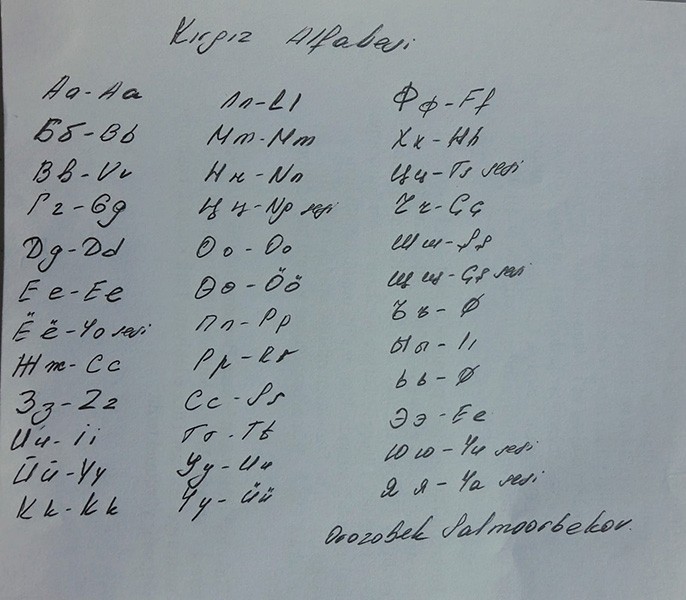 Kırgız Alfabesi
Аа-Aa
Бб-Bb
Вв-Vv
Гг-Gg
Дд-Dd
Ее-Ee
Ёё-Yo sesi
Жж-Cc
Зз-Zz
Ии-İi
Йй-Yy
Кк-Kk
Лл-Ll
Мм-Mm
Нн-Nn
Ңң-Ng sesi
Оо-Oo
Өө-Öö
Пп-Pp
Рр-Rr
Сс-Ss
Тт-Tt
Уу-Uu
Үү-Üü
Фф-Ff
Хх-Hh
Цц-Ts sesi
Чч-Çç
Шш-Şş
Щщ-Çş sesi
Ъъ-Ø
Ыы-Iı
Ьь-Ø
Ээ-Ee
Юю-Yu sesi
Яя-Ya sesi
Orozobek Salmoorbekov.